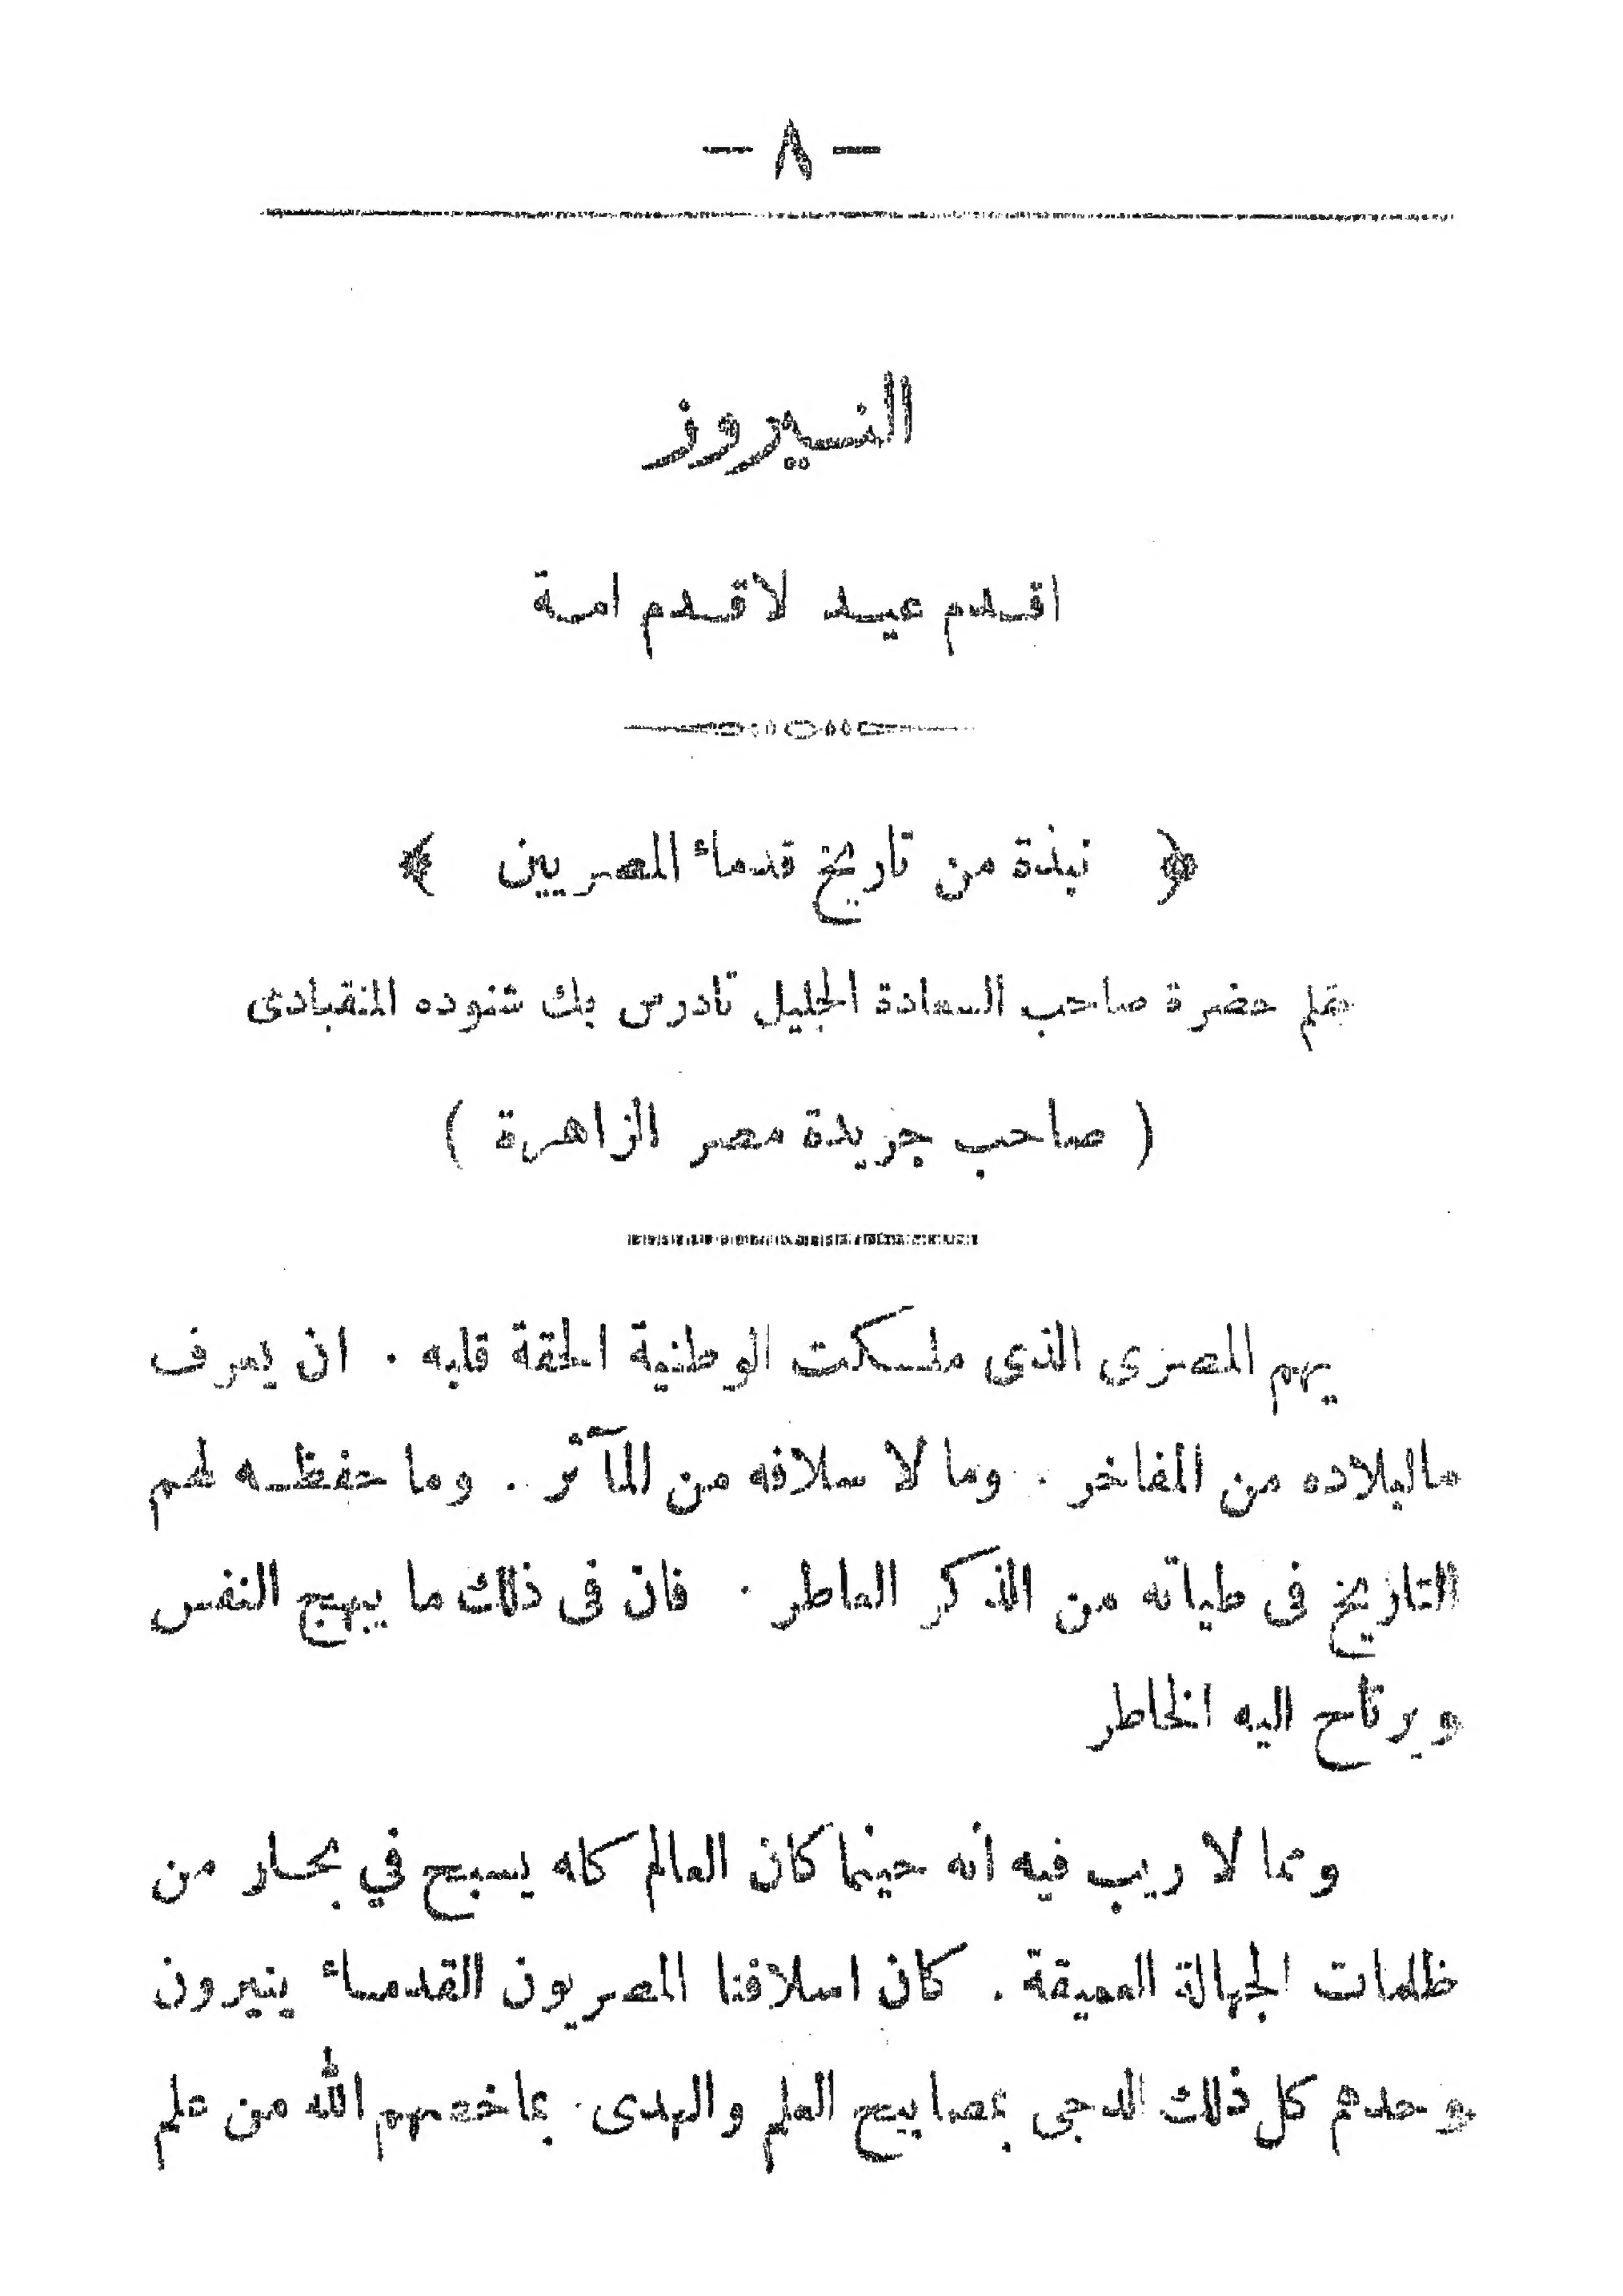 — ٨ —
النيروز
اقدم عيد لاقدم امة
﴿ نبذة من تاريخ قدماء المصريين ﴾
بقلم حضرة صاحب السعادة الجليل تادرس بك شنوده المنقبادى
( صاحب جريدة مصر الزاهرة )
يهم المصرى الذى ملكت الوطنية الحقة قلبه . ان يعرف
مالبلاده من المفاخر . وما لاسلافه من المآثر . وما حفظه لهم
التاريخ فى طياته من الذكر العاطر . فان فى ذلك ما يبهج النفس
ويرتاح اليه الخاطر
ومما لا ريب فيه أنه حينما كان العالم كله يسبح في بحار من
ظلمات الجهالة العميقة . كان اسلافنا المصريون القدماء ينيرون
وحدهم كل ذلك الدجى بمصابيح العلم والهدى . بما خصهم الله من علم